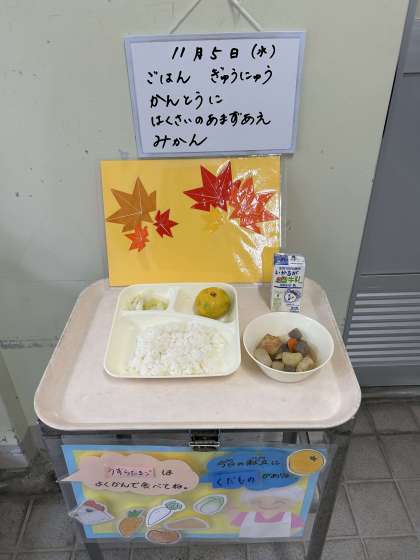 11月5日(水)
ごはん ぎゅうにゅう
かんとうに
はくさいのあまずあえ
みかん
いかるが
牛乳
うずらたまご は
よくかんで食べてね。
今日の献立に
くだもの があるよ